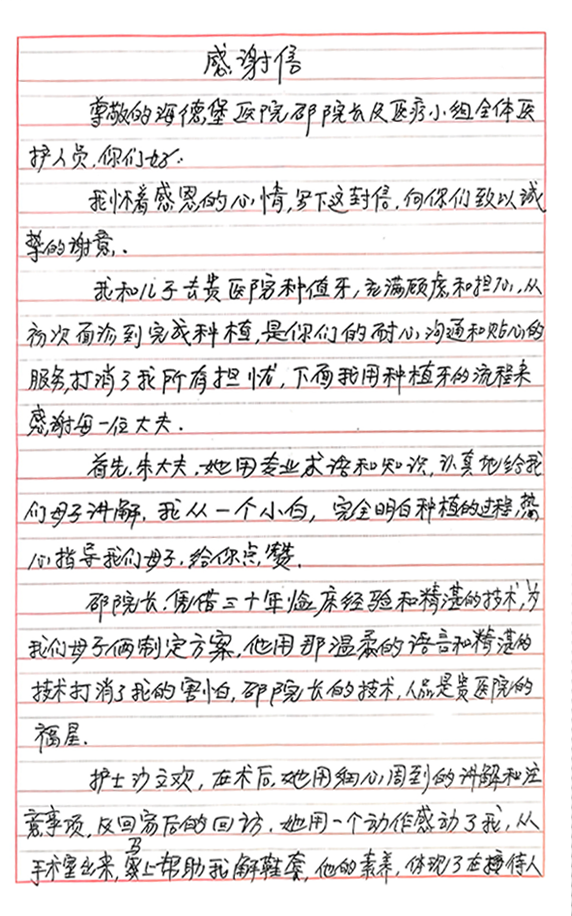 感谢信
尊敬的海德堡医院邵院长及医疗小组全体医
护人员.你们好.
我怀着感恩的心情,写下这封信,向你们致以诚
挚的谢意.
我和儿子去贵医院种值牙,充满顾虑和担心,从
初次面诊到完成种植,是你们的耐心沟通和贴心的
服务,打消了我所有担忧,下面我用种植牙的流程来
感谢每一位大夫.
首先.朱大夫.她用专业术语和知识,认真地给我
们母子讲解.我从一个小白,完全明白种植的过程,热
心指导我们母子,给你点赞.
邵院长.凭借三十年临床经验和精湛的技术,为
我们母子俩制定方案,他用那温柔的语言和精湛的
技术打消了我的害怕,邵院长的技术,人品是贵医院的
福星.
护士沙文欢,在术后,她用细心周到的讲解和注
意事项,及回家后的回访.她用一个动作感动了我,从
手术室出来,马上帮助我解鞋套,他的素养,体现了在接待人